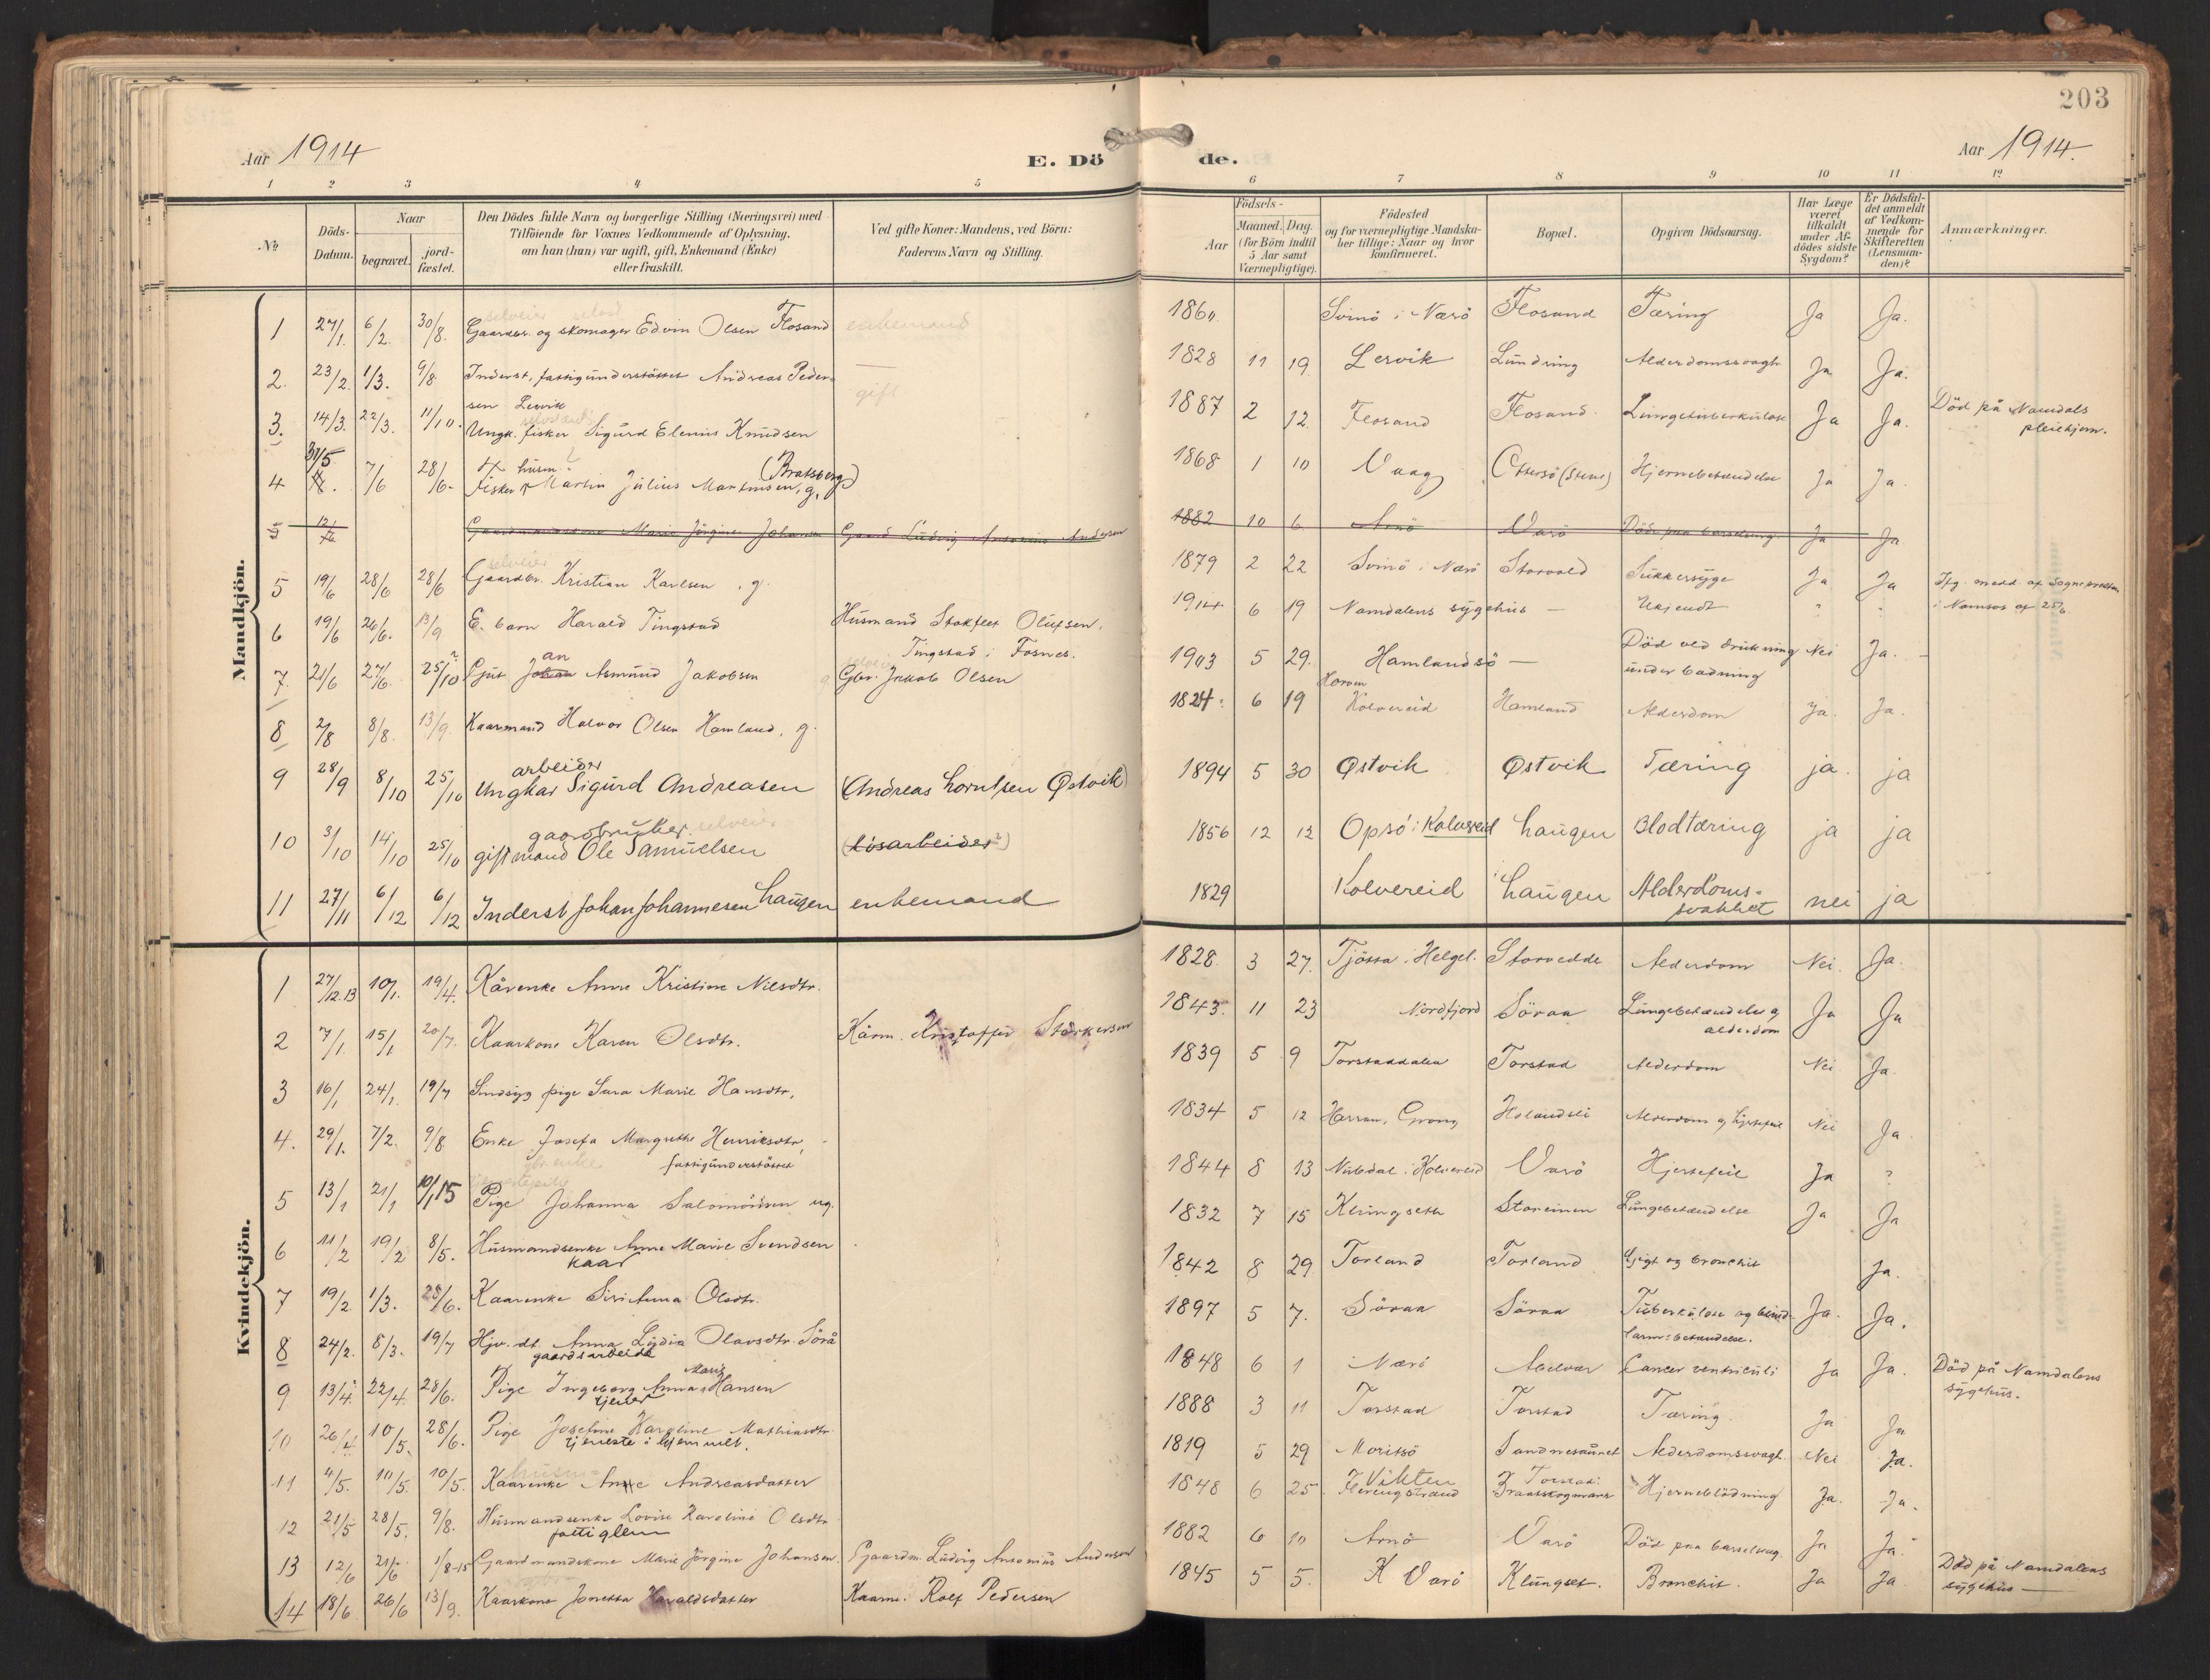 203
Aar 1914
E. Dö
de.
Aar 1914.
1 2 3 4 5 6 7 8 9 10 11 12
№
Döds-Datum.
Naar
begravet.
jord-fæstet.
Den Dödes fulde Navn og borgerlige Stilling (Næringsvei) med
Tilföiende for Voxnes Vedkommende af Oplysning,
om han (hun) var ugift, gift, Enkemand (Enke)
eller fraskilt.
Ved gifte Koner: Mandens, ved Börn:
Faderens Navn og Stilling.
Födsels-
Aar
Maaned. Dag.
(for Börn indtil
5 Aar samt
Værnepligtige).
Födested
og for værnepligtige Mandska-
ber tillige: Naar og hvor
konfirmeret.
Bopæl.
Opgiven Dödsaarsag.
Har Læge
været
tilkaldt
under Af-
dödes sidste
Sygdom?
Er Dödsfal-
det anmeldt
af Vedkom-
mende for
Skifteretten
(Lensman-
den)?
Anmærkninger.
Mandkjön.
selveier
1 27/1. 6/2. 30/8. Gaardbr. og skomager Edvin Olsen Flosand enkemand 1860. Svinö i Nærö Flosand Tæring Ja Ja.
2. 23/2. 1/3. 9/8. Inderst, fattigunderstöttet Andreas Peder- 1828 11 19. Lervik Lundring Alderdomssvagh. Ja Ja.
sen Lervik gift
3. 14/3. 22/3. 11/10. Ungk. fisker Sigurd Elenius Knudsen 1887 2 12. Flosand Flosand. Lungetuberkulose Ja Ja. Död på Namdals
pleiehjem.
husm. (Bratsberg)
4 31/5 7/6 28/6. Fisker Martin Julius Martinsen, g. 1868 1 10 Vaag Ottersö (Stene) Hjernebetændelse Ja Ja.
5 12/6 Gaardmandskone Marie Jörgine Johansen Gaard Ludvig Antonius Andersen 1882 10 6 Arnö Varö Död paa barselseng Ja Ja
selveier
5 19/6 28/6 28/6 Gaardbr. Kristian Karlsen, g. 1879 2 22 Svinö i Nærö Storvold Sukkersyge Ja Ja
6 19/6 26/6. 13/9 E. barn Harald Tingstad Husmand Stokflet Olufsen, 1914 6 19 Namdalens sygehus — Ukjendt " " i Namsos af 25/6.
Tingstad i Fosnes.
an
7. 21/6 27/6. 25/10 Gjut Johan Asmund Jakobsen Gbr. Jakob Olsen 1903 5 29. Hamlandsö — Död ved drukning Nei Ja. —
under badning
8 2/8 8/8. 13/9. Kaarmand Halvor Olsen Hamland, g. 1824 6 19 Kolvereid Hamland Alderdom Ja. Ja.
arbeider
9 28/9 8/10 25/10 Ungkar Sigurd Andreasen (Andreas Lorntsen Østvik) 1894 5 30 Østvik Østvik Tæring ja. ja
gaardbruker selveier
10 3/10 14/10 25/10 gift mand Ole Samuelsen (Løsarbeider?) 1856 12 12 Opsö i Kolvereid Haugen Blodtæring ja ja
11 27/11 6/12 6/12 Inderst Johan Johannesen Haugen enkemand 1829 Kolvereid Haugen Alderdoms-
svakhet nei ja
Kvindekjön.
1 27/12.13 10/1. 19/4. Kårenke Anne Kristine Nilsdtr. 1828. 3 27. Tjötta i Helgel. Storvedde Alderdom Nei. Ja.
2 7/1. 15/1 20/7. Kaarkone Karen Olsdtr. Kårm. Kristoffer Størkersen 1843. 11 23 Nordfjord Söraa Lungebetændelse og
alderdom Ja Ja
3 16/1 24/1. 19/7 Sindsyg pige Sara Marie Hansdtr. 1839 5 9 Torstaddalen Torstad Alderdom Nei Ja.
4. 29/1. 7/2. 9/8 Enke Josefa Margrethe Henriksdtr. 1834 5 12 Harran, Grong Holandsli Alderdom og hjertefeil Nei Ja
fattigunderstöttet
5 13/1 21/1 10/1 15 Pige Johanna Salomonsen ug. 1844 8 13 i Kolvereid Varö Hjertefeil Ja ?
6 11/2 19/2 8/5. Husmandsenke Anne Marie Svendsen 1832 7 15 Klungseth Storeinen Lungebetændelse Ja Ja
kaar
7 19/2. 1/3. 28/6. Kaarenke Siri Anna Olsdtr. 1842 8 29 Torland Torland Gigt og bronchit Ja.
8 24/2. 8/3. 19/7 Hjv. dt. Anna Lydia Olavsdtr. Sörå 1897 5 7. Söraa Söraa Tuberkulose og blind-
tarmsbetændelse. Ja. Ja.
gaardsarbeide
Marie
9 13/4. 22/4. 28/6. Pige Ingeborg Anna Hansen 1848 6 1 Nærö Abelvær Cancer ventriculi Ja Ja. Död på Namdalens
sygehus.
tjener
10 26/4 10/5. 28/6. Pige Josefine Hargine Mathiasdtr. 1888 3 11 Torstad Torstad Tæring. Ja Ja
tjeneste i hjemmet.
11 4/5. 10/5. 10/5. Kaarenke Anne Andreasdatter 1819 5 29 Moritsö Sandnesaunet Alderdomssvagh. Nei Ja.
12 21/5 28/5. 9/8. Husmandsenke Lovise Karoline Olsdtr. 1848 6 25. Vikten Hjerneblödning Ja. Ja.
fattiglem
13 12/6 21/6 1/8-15 Gaardmandskone Marie Jörgine Johansen. Gaardm. Ludvig Antonius Andersen 1882 6 10 Arnö Varö Död paa barselseng. Ja Ja.
14 18/6 26/6 13/9. Kaarkone Jonetta Haraldsdatter Kaarm. Rolf Pedersen 1845 5 5. Varö Klungset. Bronchit. Ja Ja. Död på Namdalens
sygehus —